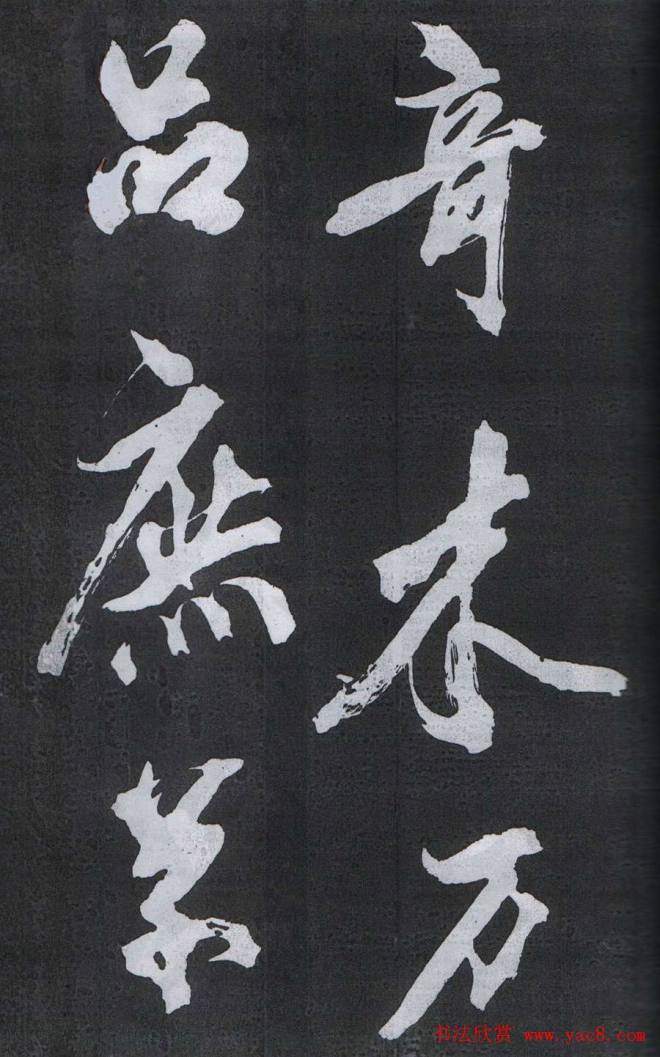 奇木万
品庶
书法欣赏 www.yac8.com